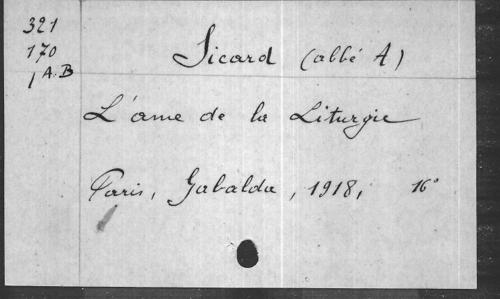 321
170
1 A.B
Sicard (abbé A)
L'ame de la Liturgie
Paris, Gabalda, 1918, 16°